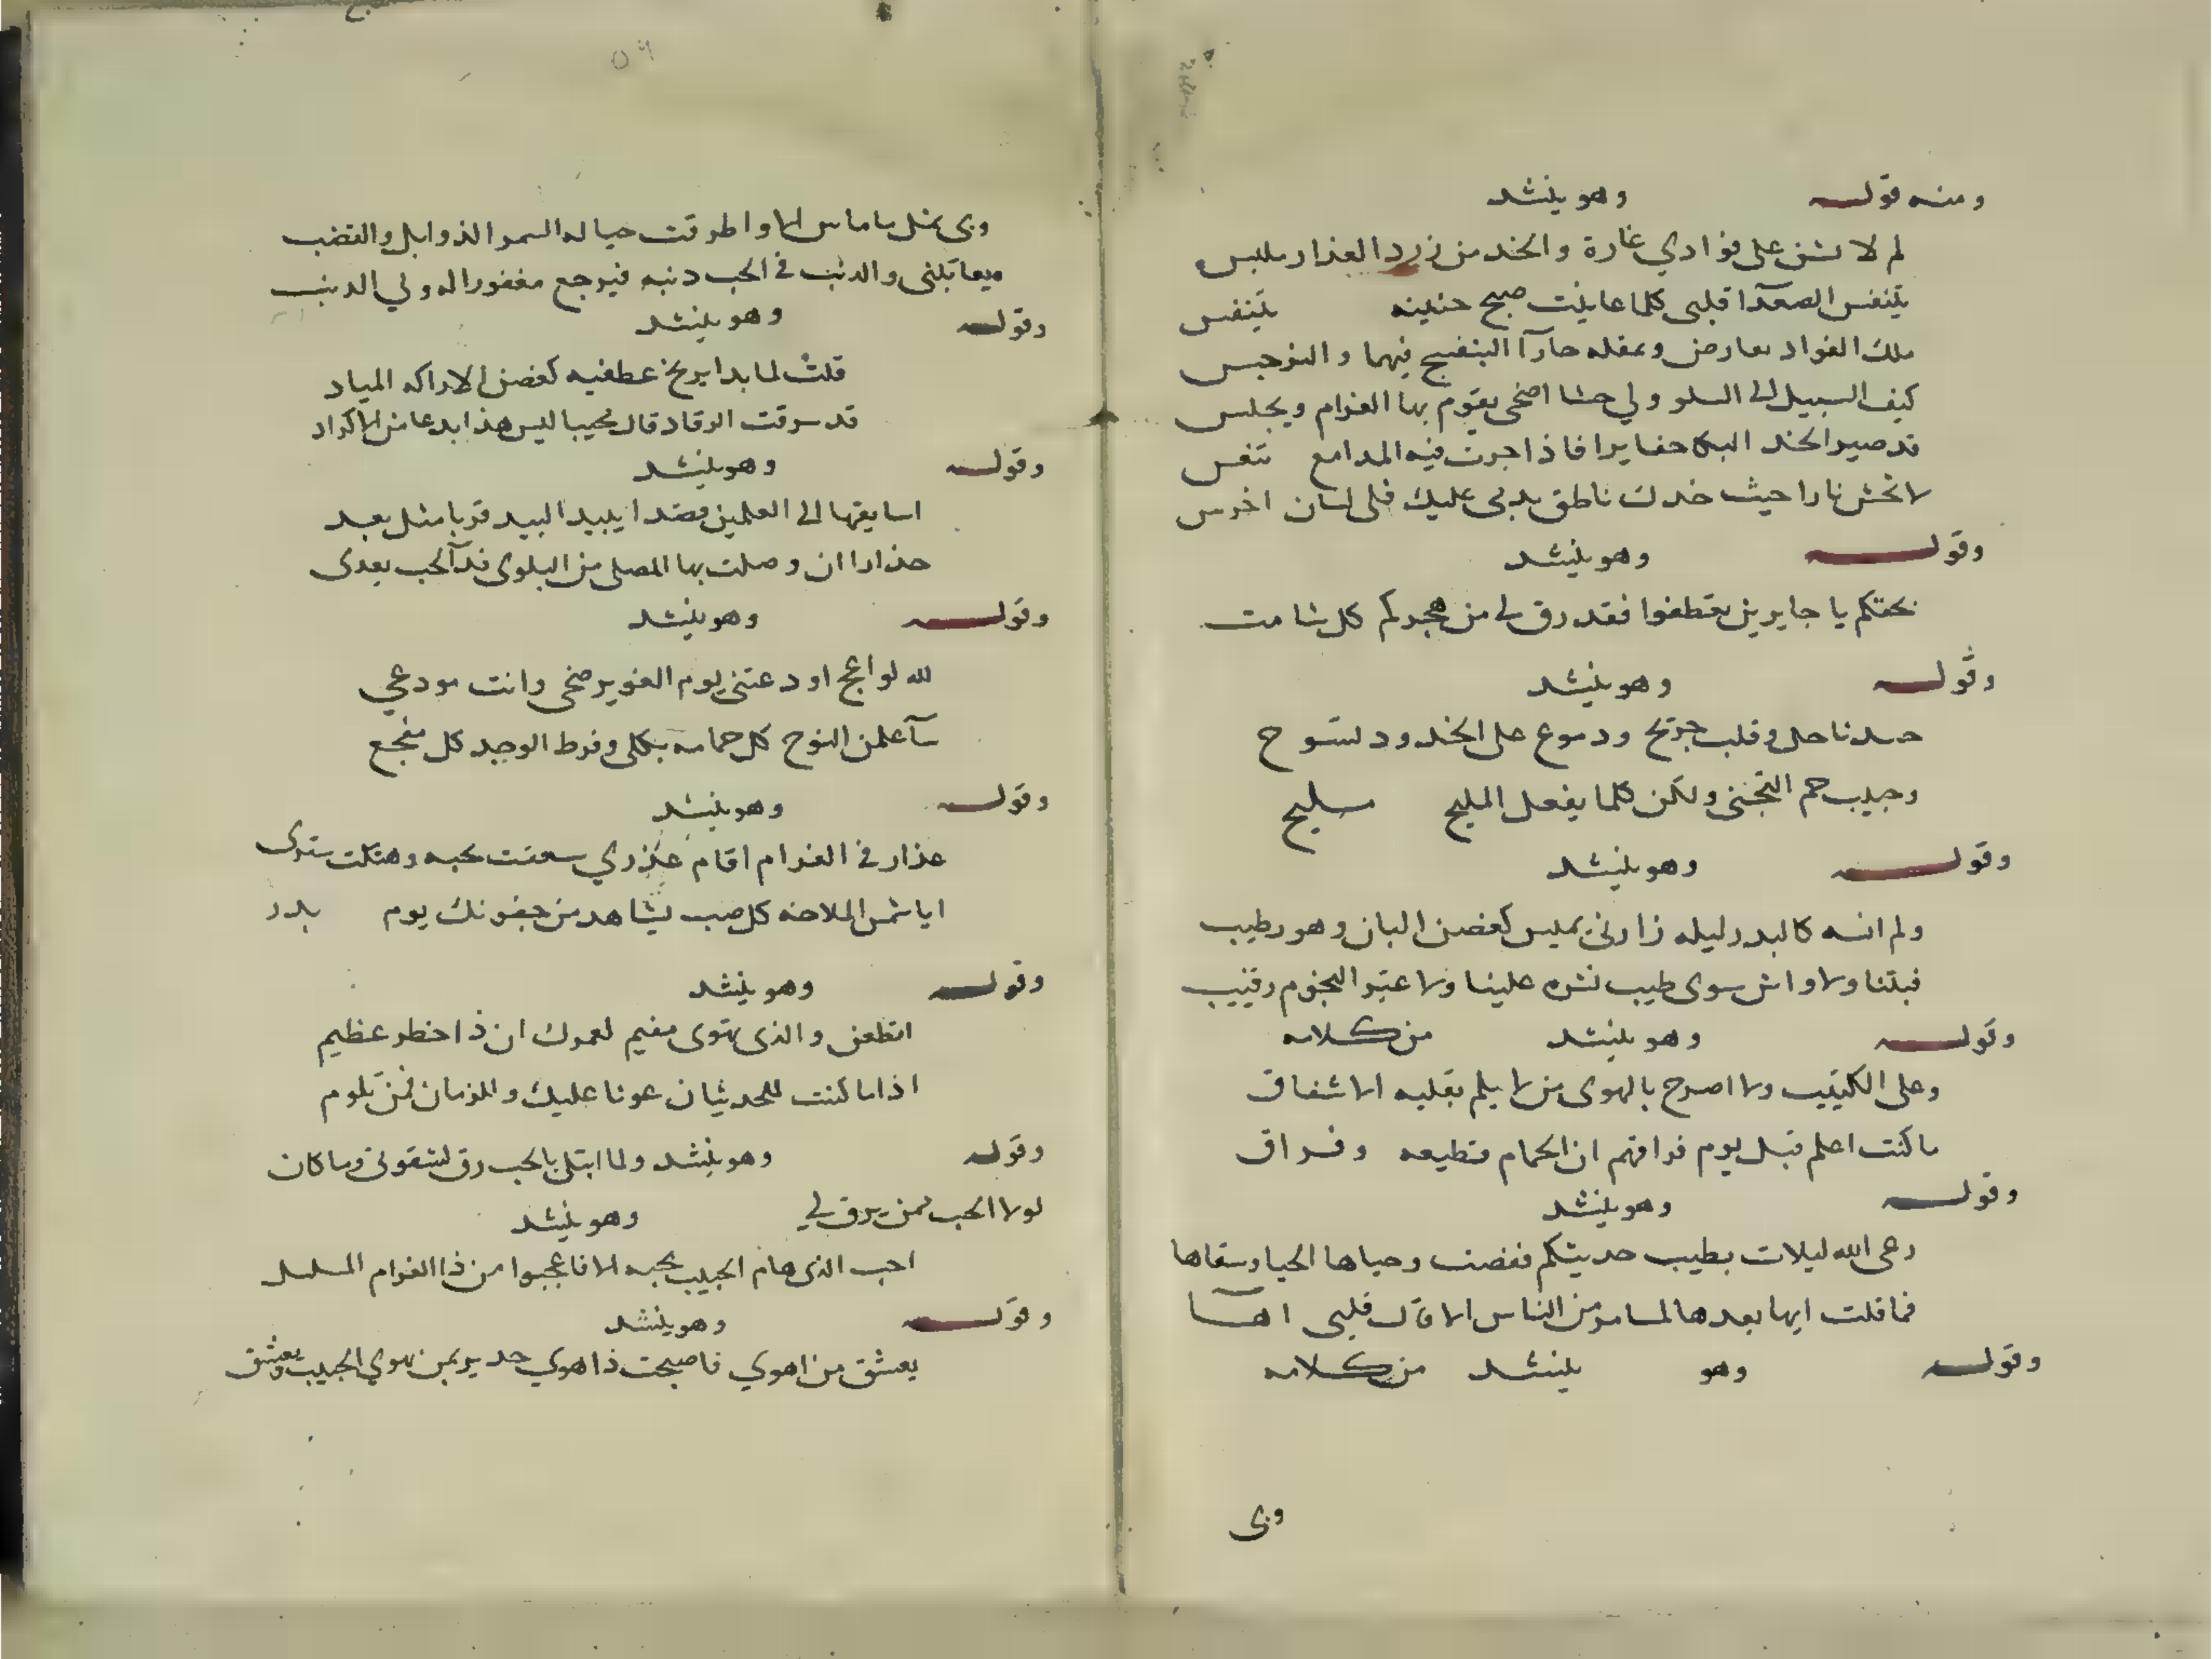 ومنه قوله وهو ينشد
لم لا تشن على فؤادي غارة والخد من زرد العذار ملبس
يتنفس الصعدا قلبى كلما عاينت صبح جبينه يتنفس
ملك الفواد بعارض ومقله حارا البنفسج فيهما والنرجس
كيف السبيل الى السلو ولي حشا اضحى يقوم بها الغرام ويجلس
قد صير الخد البكا حفايرا فاذا جرت فيه المدامع
لا تخش نارا حيث خدك ناطق بدمى عليك فلى لسان اخرس
وقوله وهو ينشد
بحقكم يا جايرين تعطفوا فقد رق لى من هجركم كل شامت
وقوله وهو ينشد
جسد ناحل وقلب جريح ودموع على الخدود تسوح
وحبيب جم التجنى ولكن كلما يفعل المليح مليح
وقوله وهو ينشد
ولم انسه كالبدر ليله زارنى يميس كغصن البان وهو رطيب
فبتنا ولا واش سوى طيب نشره علينا ولا غير النجوم رقيب
وقوله وهو ينشد من كلامه
وعلى الكثيب ولا اصرح بالهوى من لا يلم بقلبه الاشفاق
ما كنت اعلم قبل يوم فراقهم ان الحمام قطيعه وفراق
وقوله وهو ينشد
رعى الله ليلات بطيب حديثكم تقضت وحياها الحيا وسقاها
فما قلت ايها بعدها لمسامر من الناس الا قال قلبى اها
وقوله وهو ينشد من كلامه
وبى
٥٩
وبى
السمر الذوابل والقضب
ويقابلنى والذنب فى الحب ذنبه فيرجع مغفورا له ولي الذنب
وقوله وهو ينشد
قلت لما بدا يرنح عطفيه كغصن الاراكه المياد
قد سرقت الرقاد قال مجيبا ليس هذا بدعا من الاكراد
وقوله وهو ينشد
اسايقها الى العلمين قصدا يبيد البيد قربا مثل بعد
حذارا ان وصلت بها المصلى من البلوى فدآ الحب يعدى
وقوله وهو ينشد
لله لواعج اودعتنى يوم الغوير ضحى وانت مودعي
سآعلمن النوح كل حمامه بكلى وفرط الوجد كل مفجع
وقوله وهو ينشد
عذار فى الغرام اقام عذري بحبه وهتكت سترى
ايا شمس الملاحه كل صب يشاهد من جفونك يوم بدر
وقوله وهو ينشد
اتظعن والذى تهوى مقيم لعمرك ان ذا خطر عظيم
اذا ما كنت للحدثان عونا عليك وللزمان فمن تلوم
وقوله وهو ينشد ولما ابتلى بالحب رق لشقوتى وما كان
لولا الحب ممن يرق لي وهو ينشد
احب الذى هام الحبيب بحبه الا فاعجبوا من ذا الغرام المسلسل
وقوله وهو ينشد
يعشق من اهوي فاصبحت ذا هوي جدير بمن يهوي الحبيب ويعشق